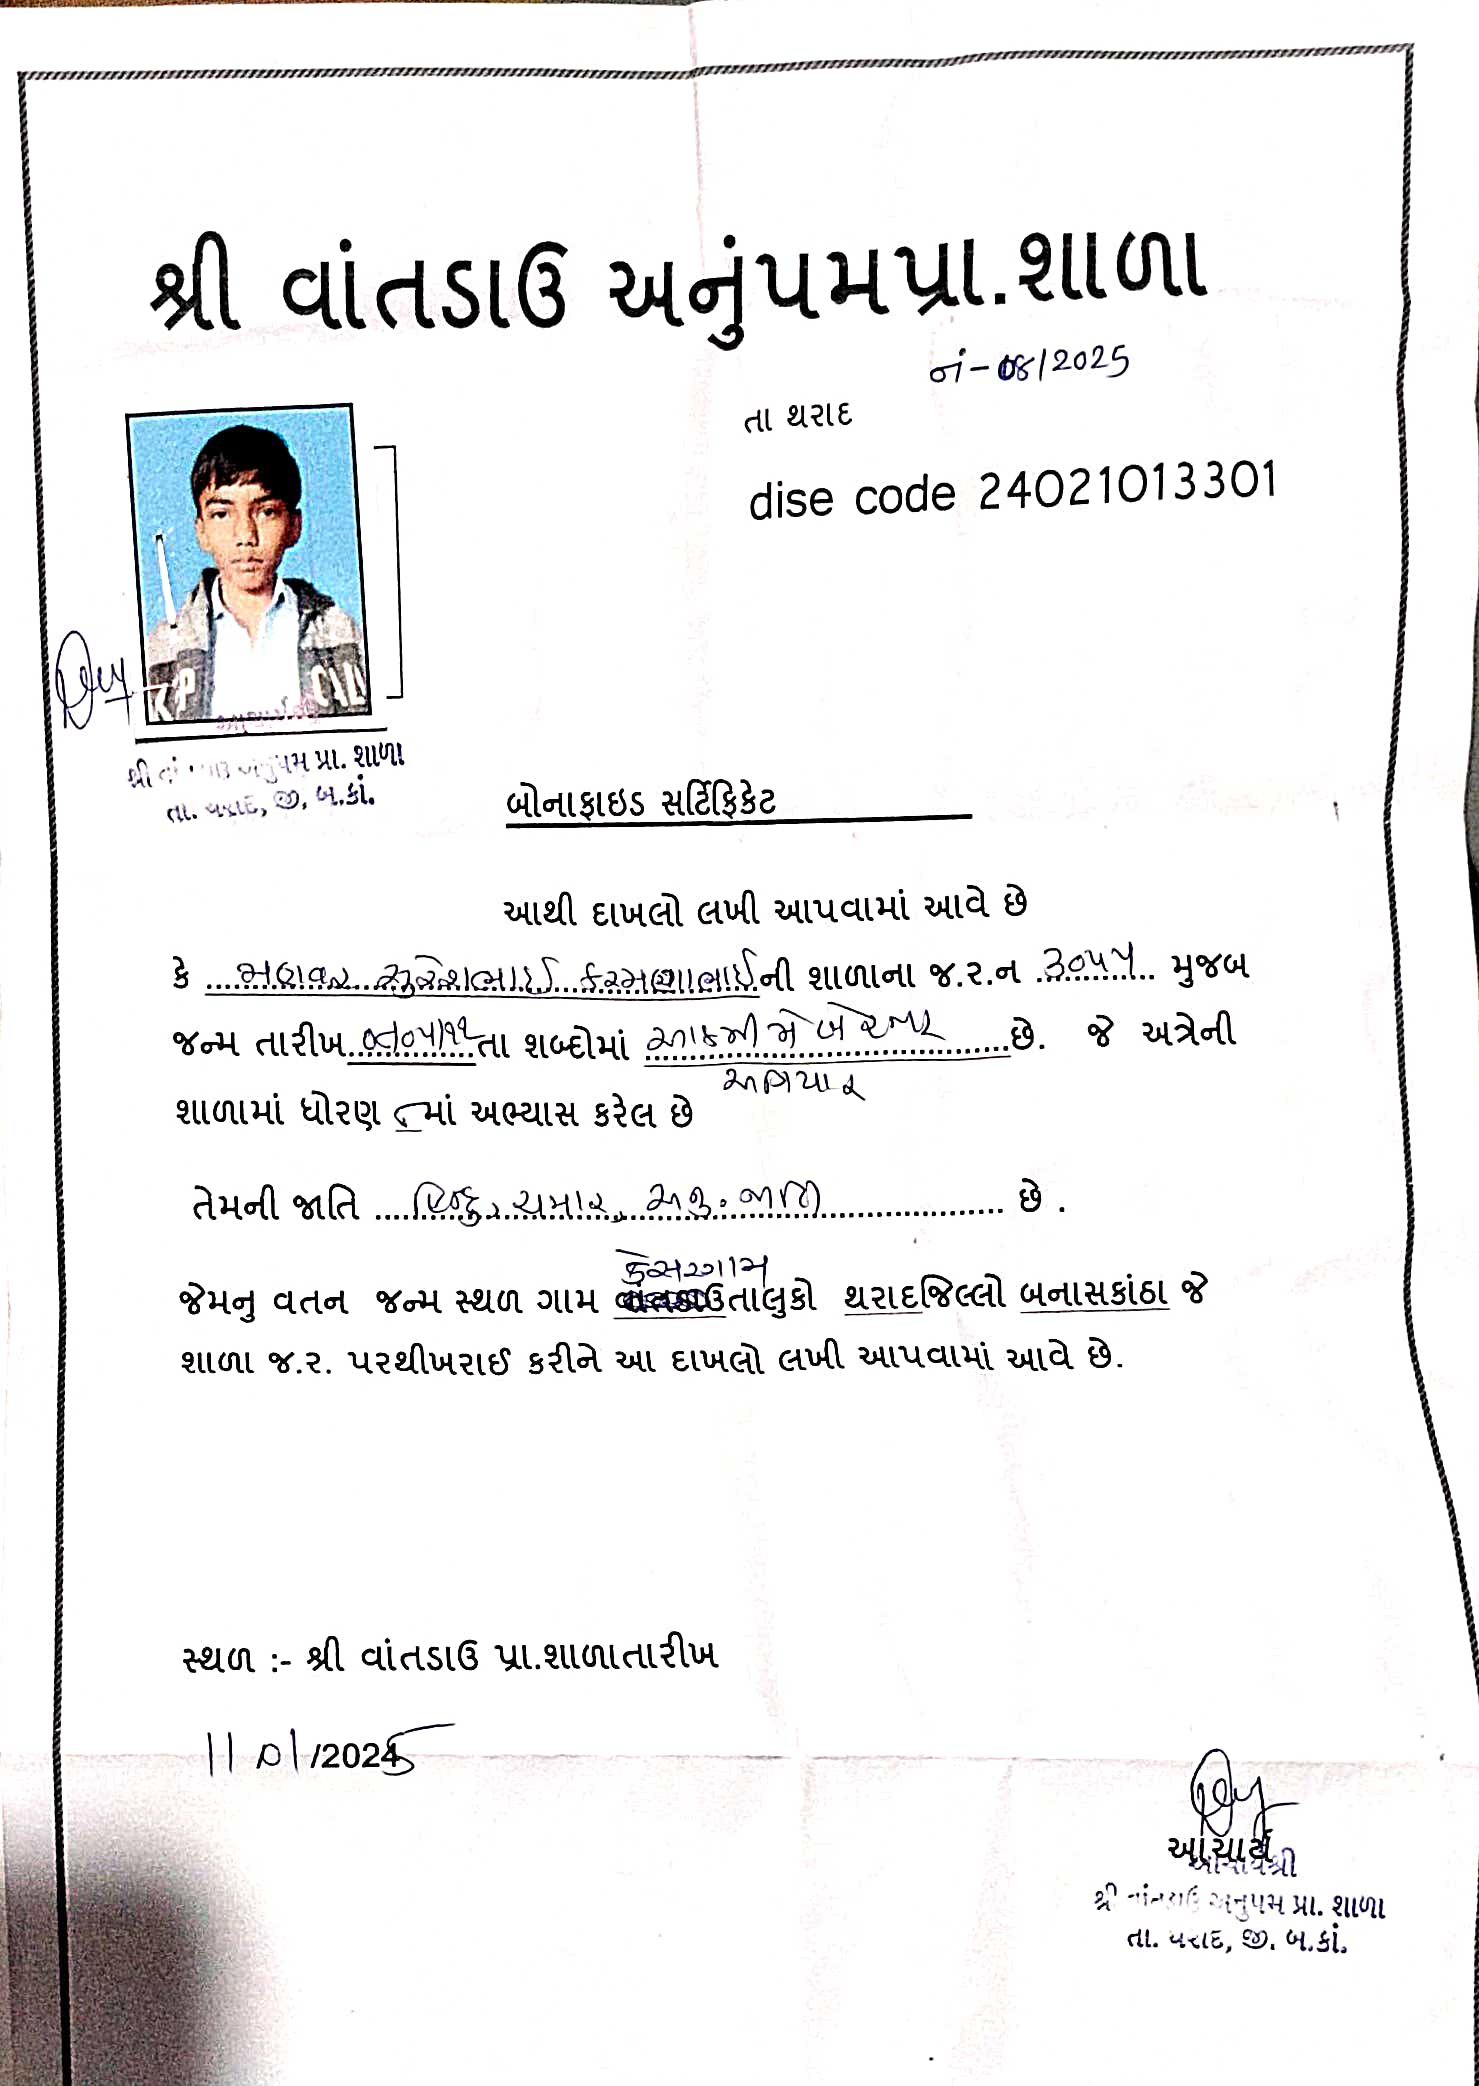 શ્રી વાંતડાઉ અનુંપમપ્રા.શાળા
નં-08/2025
તા થરાદ
dise code 24021013301
શ્રી અનુપમ પ્રા. શાળા
તા. થરાદ, જી. બ.કાં.
બોનાફાઇડ સર્ટિફિકેટ
આથી દાખલો લખી આપવામાં આવે છે
કે મણવર સુરેશભાઈ કરમણભાઈની શાળાના જ.ર.ન ૩૦૫૫ મુજબ
જન્મ તારીખ તા શબ્દોમાં આઠમી મે બે હજાર છે. જે અત્રેની
અગિયાર
શાળામાં ધોરણ ૮માં અભ્યાસ કરેલ છે
તેમની જાતિ હિન્દુ, ચમાર, અનુ. જાતિ છે .
કેસરગામ
જેમનુ વતન જન્મ સ્થળ ગામ વાંતડાઉતાલુકો થરાદજિલ્લો બનાસકાંઠા જે
શાળા જ.ર. પરથીખરાઈ કરીને આ દાખલો લખી આપવામાં આવે છે.
સ્થળ :- શ્રી વાંતડાઉ પ્રા.શાળાતારીખ
11/01/2025
આચાર્ય
આચાર્યશ્રી
શ્રી વાંતડાઉ અનુપમ પ્રા. શાળા
તા. થરાદ, જી. બ.કાં.